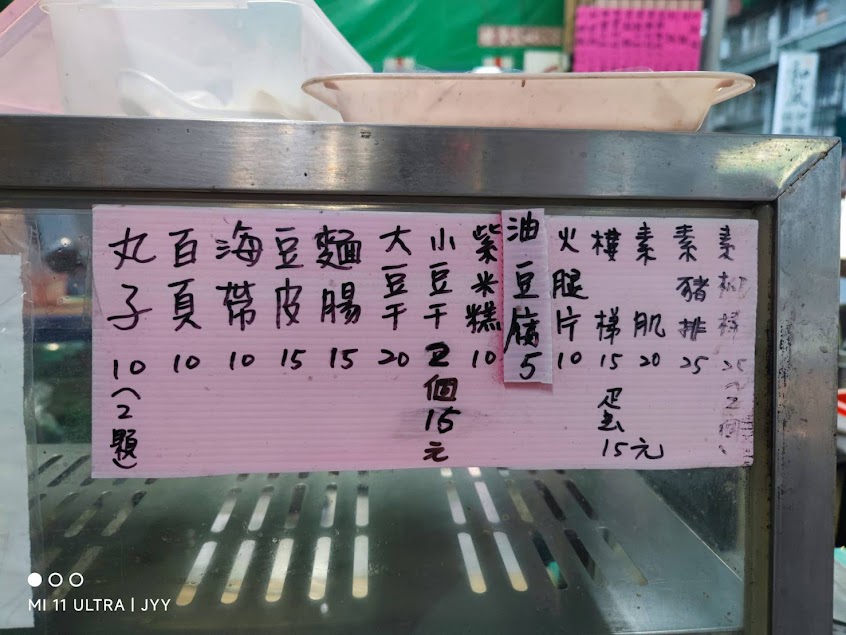 丸子 10 (2顆)
百頁 10
海帶 10
豆皮 15
麵腸 15
大豆干 20
小豆干 2個15元
紫米糕 10
油豆腐 5
火腿片 10
樓梯 15
素肌 20
素豬排 25
素
25 (2個)
15元
MI 11 ULTRA | JYY